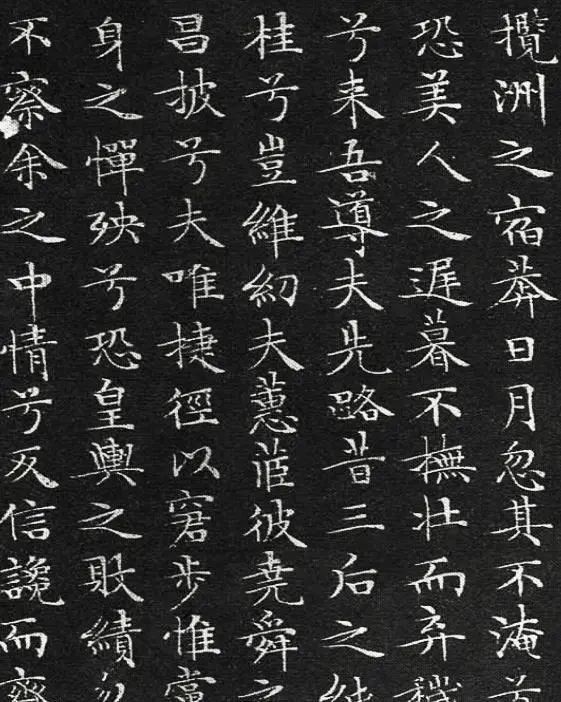 攬洲之宿莽日月忽其不淹兮
恐美人之遲暮不撫壯而弃穢
兮来吾導夫先路昔三后之純
桂兮豈維紉夫蕙茝彼堯舜之
昌披兮夫唯捷徑以窘步惟當
身之憚殃兮恐皇輿之敗績忽
不察余之中情兮反信讒而齊